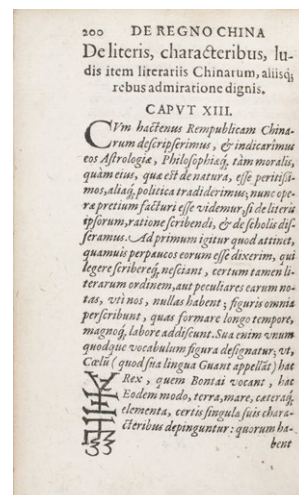 200 DE REGNO CHINA
De literis, characteribus, lu-
dis item literariis Chinarum, aliisq;
rebus admiratione dignis.
CAPVT XIII.
CVm hactenus Rempublicam China-
rum descripserimus, & indicarimus
eos Astrologiæ, Philosophiæq́, tàm moralis,
quàm eius, quæ est de natura, esse peritissi-
mos, aliaq́, politica tradiderimus; nunc ope-
ræ pretium facturi esse videmur, si de literis
ipsorum, ratione scribendi, & de scholis dis-
seramus. Ad primum igitur quod attinet,
quamuis perpaucos eorum esse dixerim, qui
legere scribereq́, nesciant, certum tamen li-
terarum ordinem, aut peculiares earum no-
tas, vti nos, nullas habent; figuris omnia
perscribunt, quas formare longo tempore,
magnoq́, labore addiscunt. Sua enim vnum
quodque vocabulum figura designatur; vt,
Cœlũ (quod sua lingua Guant appellãt) hac
Rex, quem Bontai vocant, hac
Eodem modo, terra, mare, cæteraq́,
elementa, certis singula suis chara-
cteribus depinguntur: quorum ha-
bent